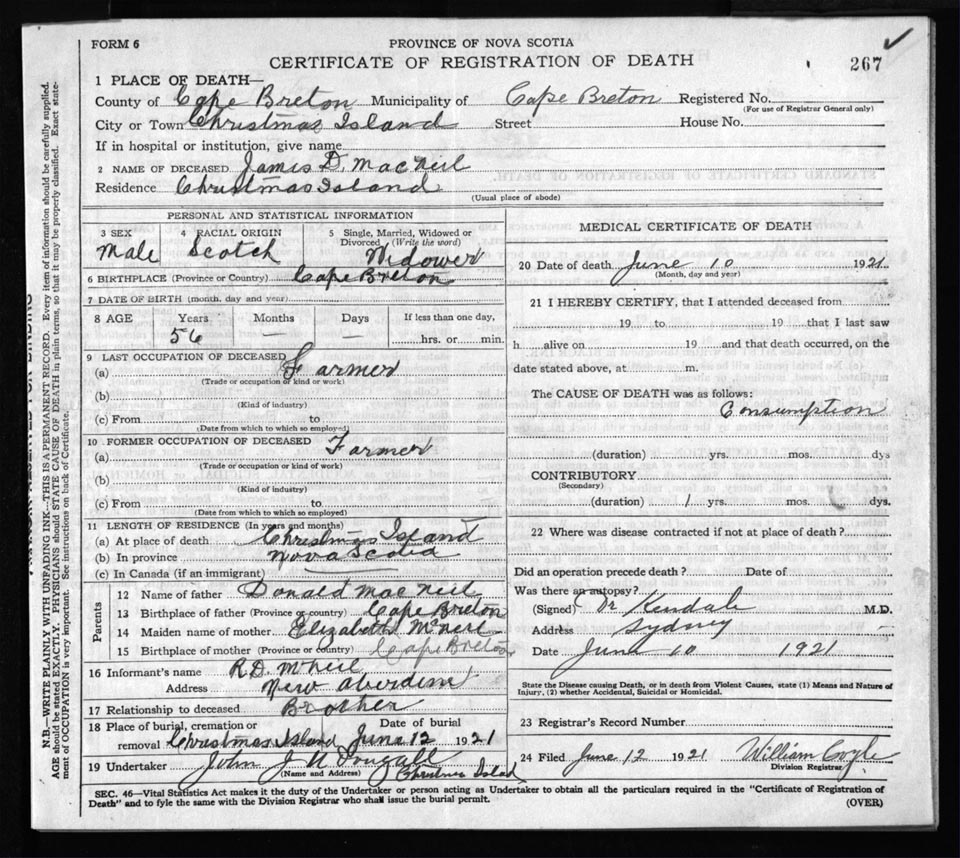 FORM 6
PROVINCE OF NOVA SCOTIA
CERTIFICATE OF REGISTRATION OF DEATH
267
1 PLACE OF DEATH—
County of Cape Breton Municipality of Cape Breton Registered No.
(For use of Registrar General only)
City or Town Christmas Island Street House No.
If in hospital or institution, give name
2 NAME OF DECEASED James D. MacNeil
Residence Christmas Island
(Usual place of abode)
PERSONAL AND STATISTICAL INFORMATION
3 SEX 4 RACIAL ORIGIN 5 Single, Married, Widowed or Divorced (Write the word)
Male Scotch Widower
6 BIRTHPLACE (Province or Country) Cape Breton
7 DATE OF BIRTH (month, day and year)
8 AGE Years Months Days If less than one day,
56 — — hrs. or min.
9 LAST OCCUPATION OF DECEASED
(a) Farmer
(Trade or occupation or kind or work)
(b)
(Kind of industry)
(c) From to
(Date from which to which so employed)
10 FORMER OCCUPATION OF DECEASED
(a) Farmer
(Trade or occupation or kind of work)
(b)
(Kind of industry)
(c) From to
(Date from which to which so employed)
11 LENGTH OF RESIDENCE (In years and months)
(a) At place of death Christmas Island
(b) In province Nova Scotia
(c) In Canada (if an immigrant)
Parents
12 Name of father Donald MacNeil
13 Birthplace of father (Province or country) Cape Breton
14 Maiden name of mother Elizabeth McNeil
15 Birthplace of mother (Province or country) Cape Breton
16 Informant's name R.D. McNeil
Address New Aberdeen
17 Relationship to deceased Brother
18 Place of burial, cremation or Date of burial
removal Christmas Island June 12 1921
19 Undertaker John J
(Name and Address) Christmas Island
MEDICAL CERTIFICATE OF DEATH
20 Date of death June 10 1921
(Month, day and year)
21 I HEREBY CERTIFY, that I attended deceased from
19 to 19 that I last saw
h alive on 19 and that death occurred, on the
date stated above, at m.
The CAUSE OF DEATH was as follows:
Consumption
(duration) yrs. mos. dys
CONTRIBUTORY
(Secondary)
(duration) 1 yrs. mos. dys.
22 Where was disease contracted if not at place of death?
Did an operation precede death? Date of
Was there an autopsy?
(Signed) Dr M.D.
Address Sydney
Date June 10 1921
State the Disease causing Death, or in death from Violent Causes, state (1) Means and Nature of
Injury, (2) whether Accidental, Suicidal or Homicidal.
23 Registrar's Record Number
24 Filed June 12 1921 William
Division Registrar
SEC. 46—Vital Statistics Act makes it the duty of the Undertaker or person acting as Undertaker to obtain all the particulars required in the "Certificate of Registration of
Death" and to fyle the same with the Division Registrar who shall issue the burial permit.
(OVER)
N.B.—WRITE PLAINLY WITH UNFADING INK—THIS IS A PERMANENT RECORD. Every item of information should be carefully supplied.
AGE should be stated EXACTLY. PHYSICIANS should STATE CAUSE OF DEATH in plain terms, so that it may be properly classified. Exact state-
ment of OCCUPATION is very important. See instructions on back of Certificate.